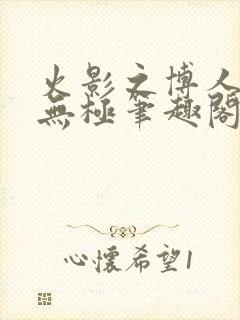 火影之博人
無極筆趣閣
心懷希望1